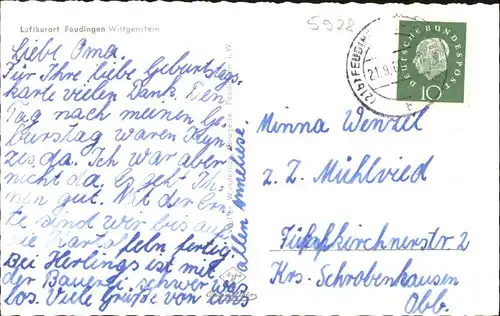 Luftkurort Feudingen Wittgenstein
5928
Liebe Oma.
Für Ihre liebe Geburtstags
karte vielen Dank. Den
Tag nach meinen Ge
burstag waren
da. Ich war aber
nicht da. Es geht Ih
nen gut. Mit der Ern
te sind wir bis auf
die Kartoffeln fertig.
Bei Herlings ist mit
der Bauerei schwer was
los. Viele Grüße von uns
allen Anneliese.
DEUTSCHE BUNDESPOST
10
(21b) FEUDINGEN
21.9.
b
Minna Wenzel
z. Z. Mühlried
2
Krs. Schrobenhausen
Obb.